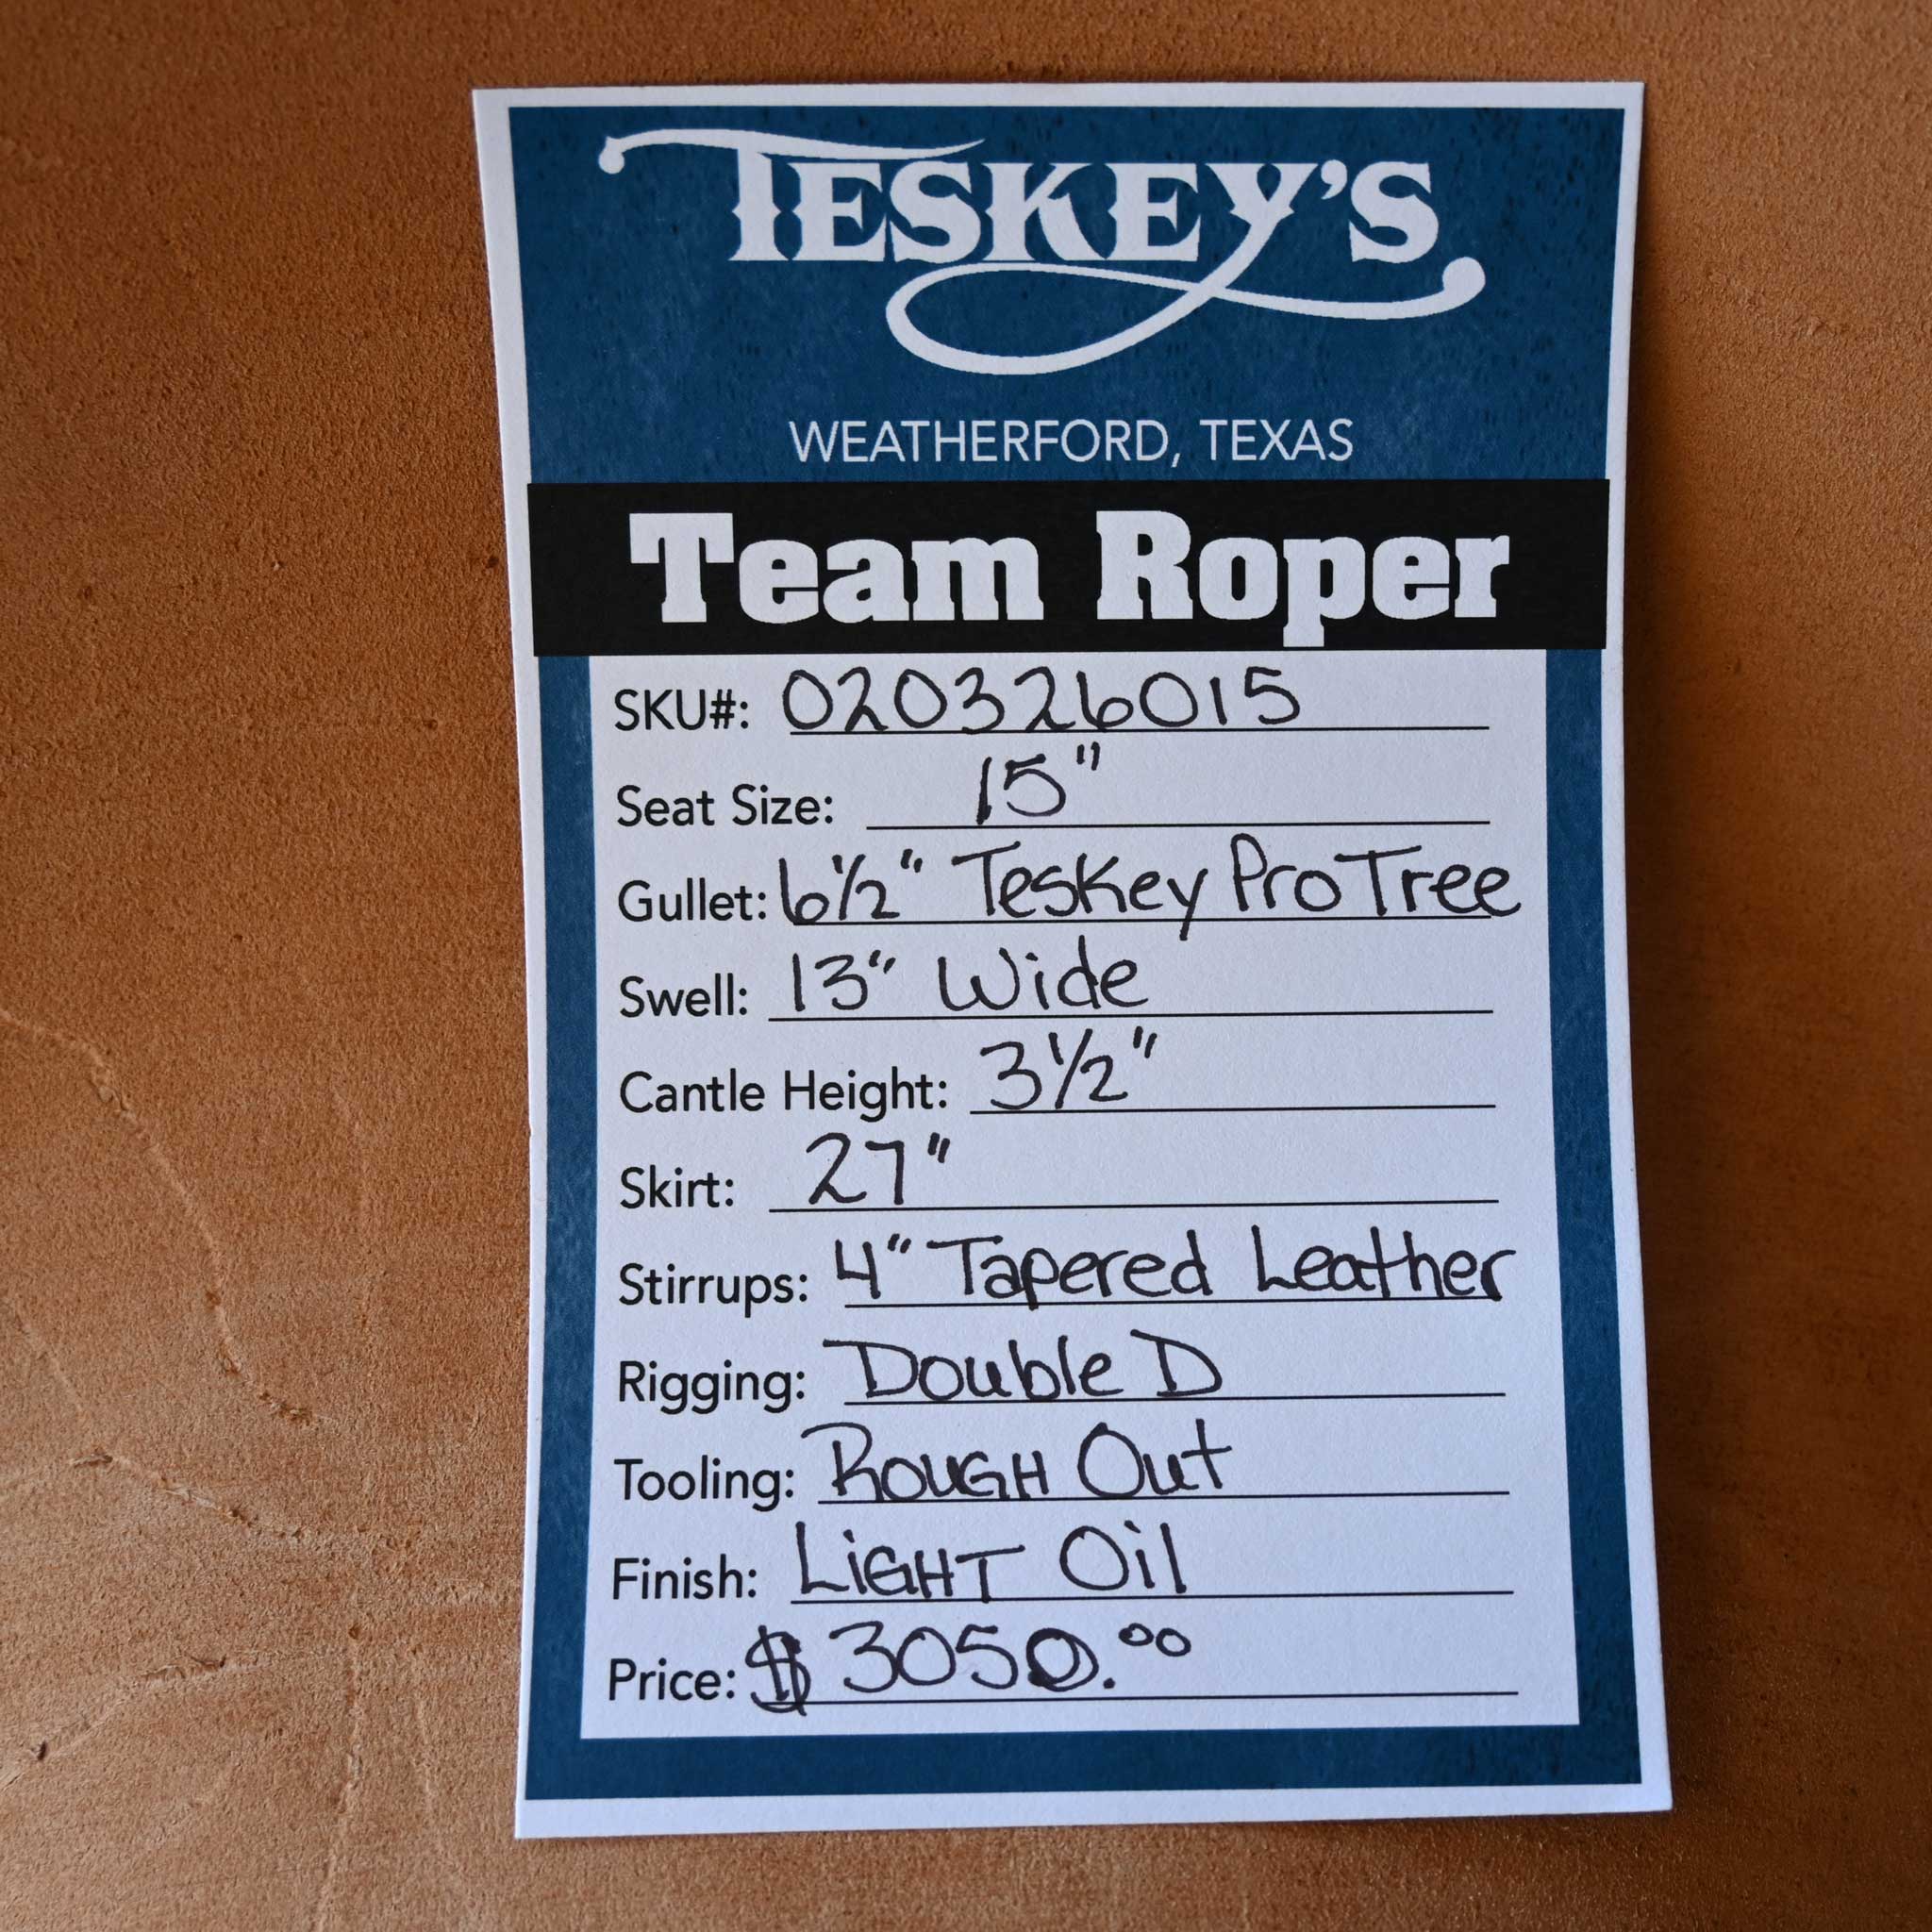 TESKEY'S
WEATHERFORD, TEXAS
Team Roper
SKU#: 020326015
Seat Size: 15"
Gullet: 6½" Teskey Pro Tree
Swell: 13" Wide
Cantle Height: 3½"
Skirt: 27"
Stirrups: 4" Tapered Leather
Rigging: Double D
Tooling: ROUGH Out
Finish: LiGHT Oil
Price: $3050.00